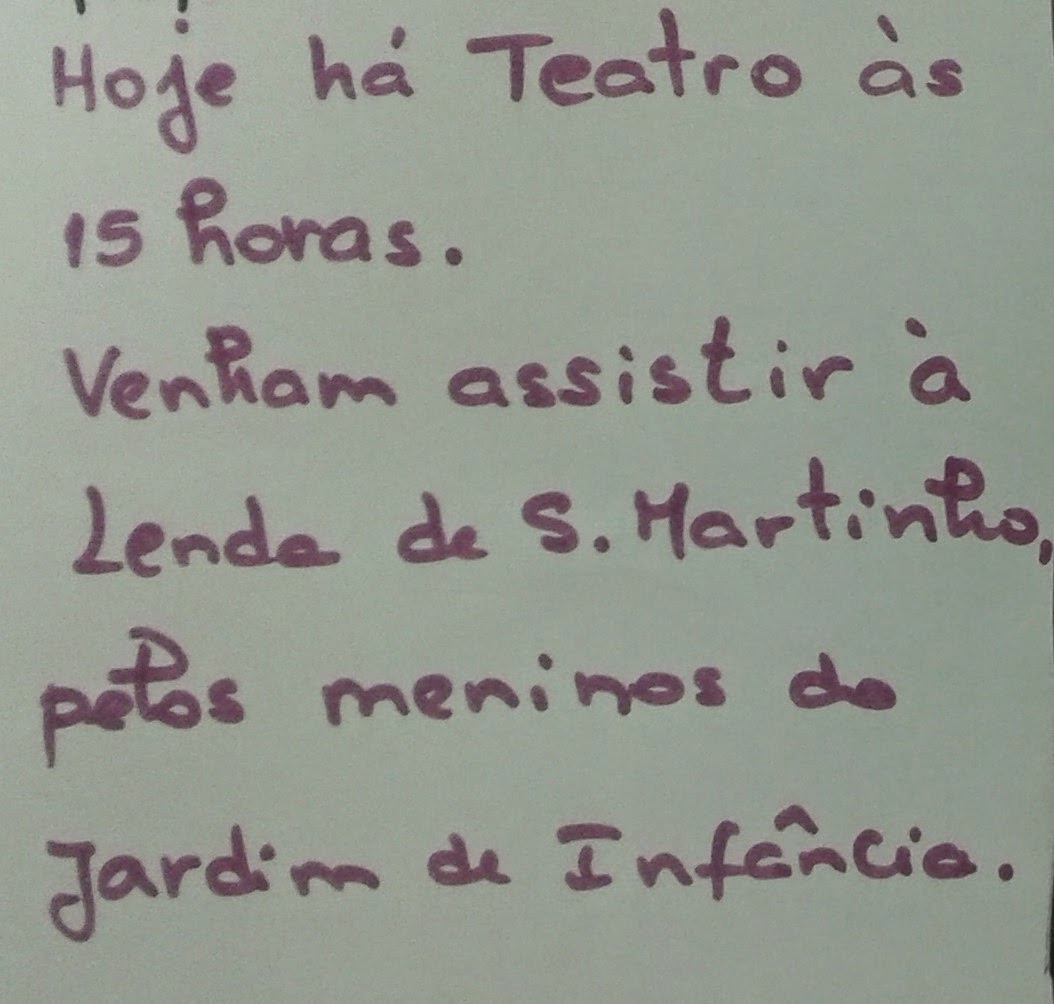 Hoje há Teatro às
15 horas.
Venham assistir à
Lenda de S. Martinho,
pelos meninos do
Jardim de Infância.